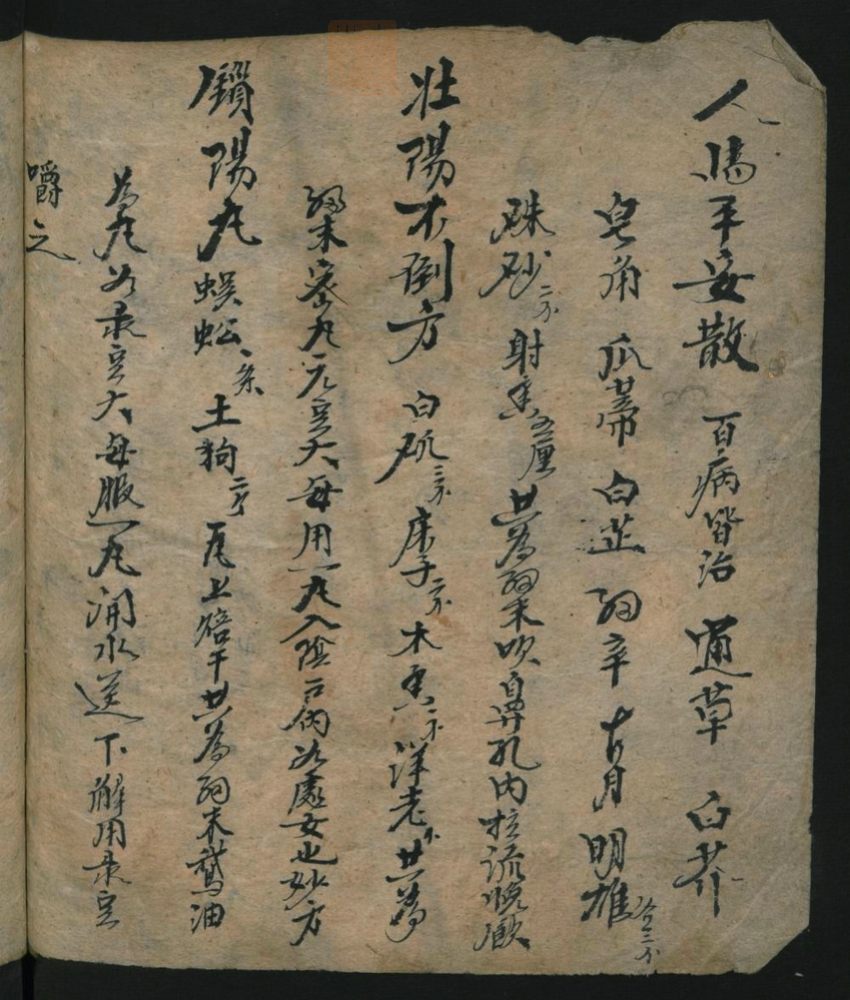 人馬平安散 百病皆治 通草 白芥
皂角 瓜蒂 白芷 細辛 明雄 各三分
硃砂二分 射香五厘 共為細末吹鼻孔內
壯陽不倒方 白矾三分 床子二分 木香二分 洋老 共為
細末蜜丸元豆大每用一丸入陰户內如處女也妙方
鎖陽丸 蜈蚣一条 土狗二个 瓦上焙干共為細末鵝油
為丸如彔豆大每服一丸 水送下解用彔豆
嚼之